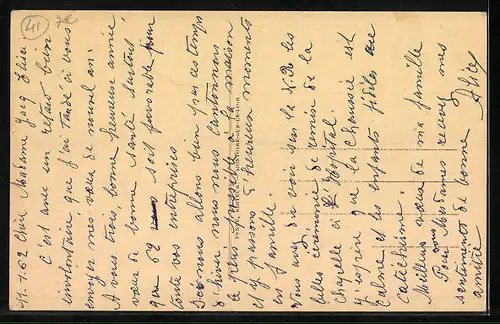 41
11.1.62 Chère Madame Jacq
C'est avec un retard bien
involontaire, que j'ai tardé à vous
envoyer mes vœux de nouvel an.
A vous trois, bonne heureuse année,
vœux de bonne santé surtout
que 62 vous soit favorable pour
toute vos entreprises
Ici nous allons bien, par ces temps
d'hiver nous nous cantonnons
le plus possible à la maison
et y passons d'heureux moments
en famille.
Vous avez dû voir sur la les
belles cérémonie de remise de la
chapelle à l'Hôpital.
J'espère que la Chaussée est
calme et les enfants fidèles au
catéchisme.
Meilleurs vœux de ma famille
Pour vous Mesdames recevez mes
sentiments de bonne
amitié
Alice